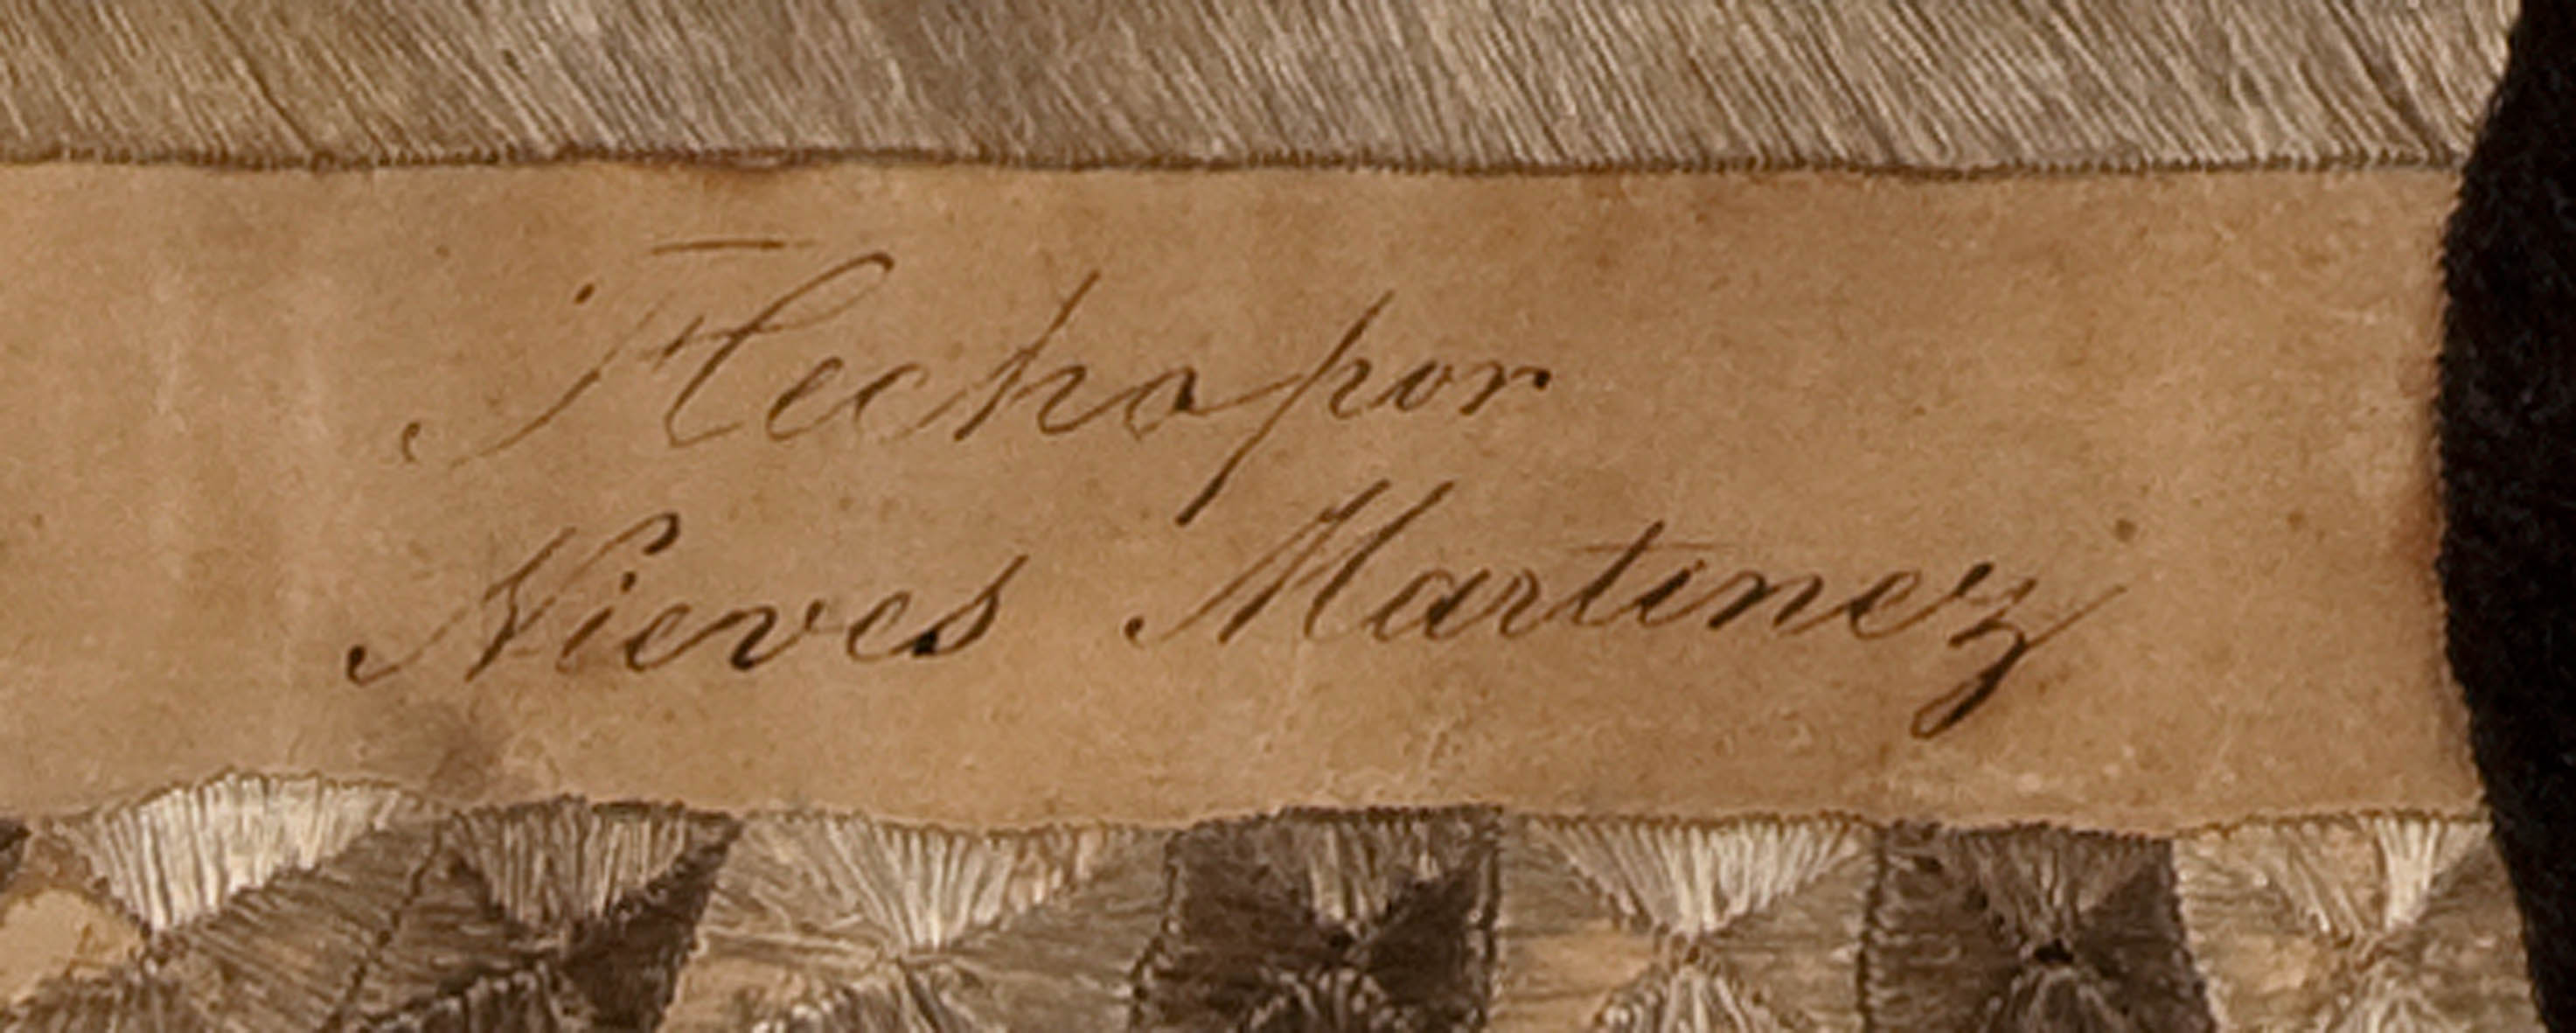 Hecho por
Nieves Martinez